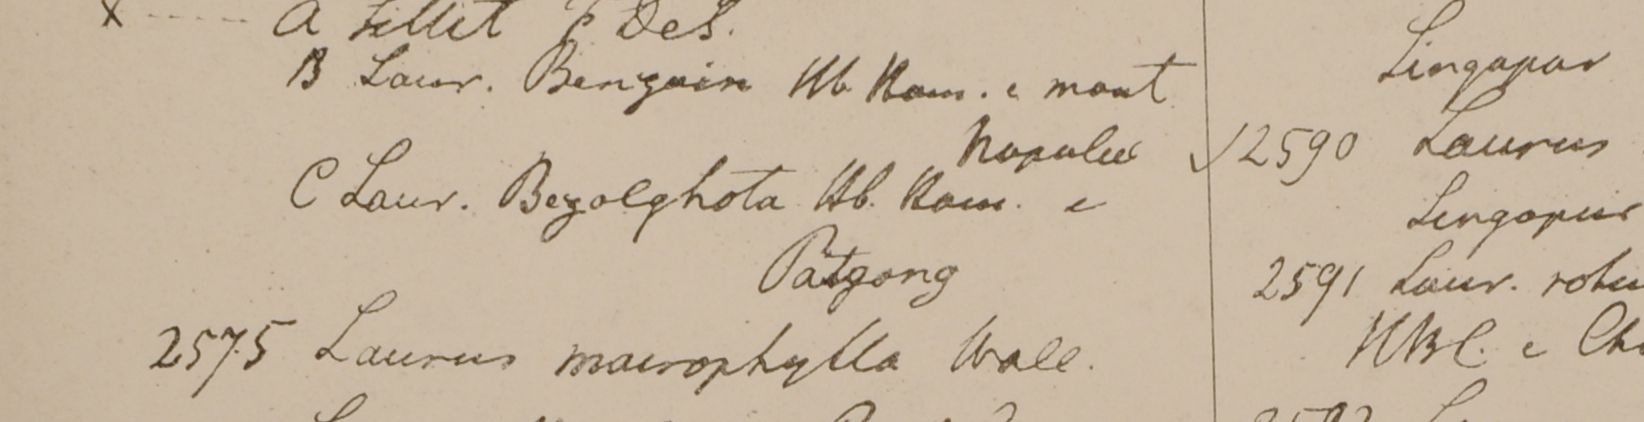 X A Sillet F DeS.
B Laur. Benzoin Hb. Ham. e mont
C Laur. Bezolghota Hb. Ham. e
Patgong
2575 Laurus macrophylla Wall.
Singapur
√2590 Laurus
Singapur
2591 Laur. robu
HBC. e Ch